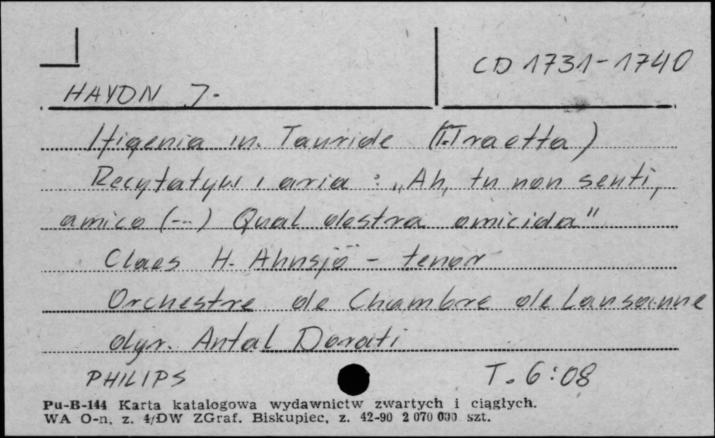 CD 1731-1740
HAYDN J.
Ifigenia in Tauride (T.Traetta)
Recytatyw i aria : „Ah, tu non senti,
amico (---) Qual destra omicida"
Claes H. Ahnsjö - tenor
Orchestre de Chambre de Lausanne
dyr. Antal Dorati
PHILIPS T. 6:08
Pu-B-144 Karta katalogowa wydawnictw zwartych i ciągłych.
WA O-n, z. 4/DW ZGraf. Biskupiec, z. 42-90 2 070 000 szt.